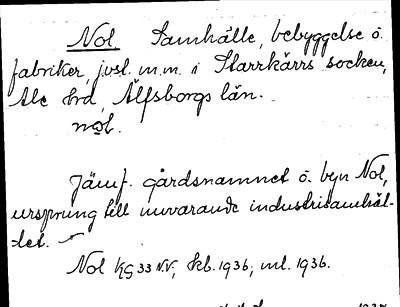 Nol Samhälle, bebyggelse o.
fabriker, jvst. m.m. i Starrkärrs socken,
Ale hd, Älfsborgs län.
nol.
Jämf. gårdsnamnet o. byn Nol,
ursprung till nuvarande industrisamhäl-
let.
Nol KG 33 N.V; skb. 1936, ml. 1936.